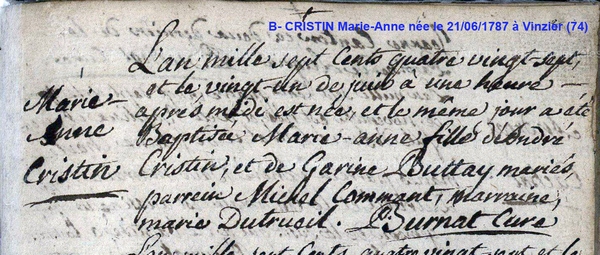 B- CRISTIN Marie-Anne née le 21/06/1787 à Vinzier (74)
L'an mille sept Cents quatre vingt sept,
et le vingt-un de juin à une heure
après midi est née, et le même jour a été
Marie-
Anne
Cristin
Baptisée Marie-anne fille d'andré
Cristin, et de Garine Buttay mariés,
parrein Michel Command, marraine,
marie Dutrueil. Burnat Curé
L'an mille sept Cents quatre vingt sept et le